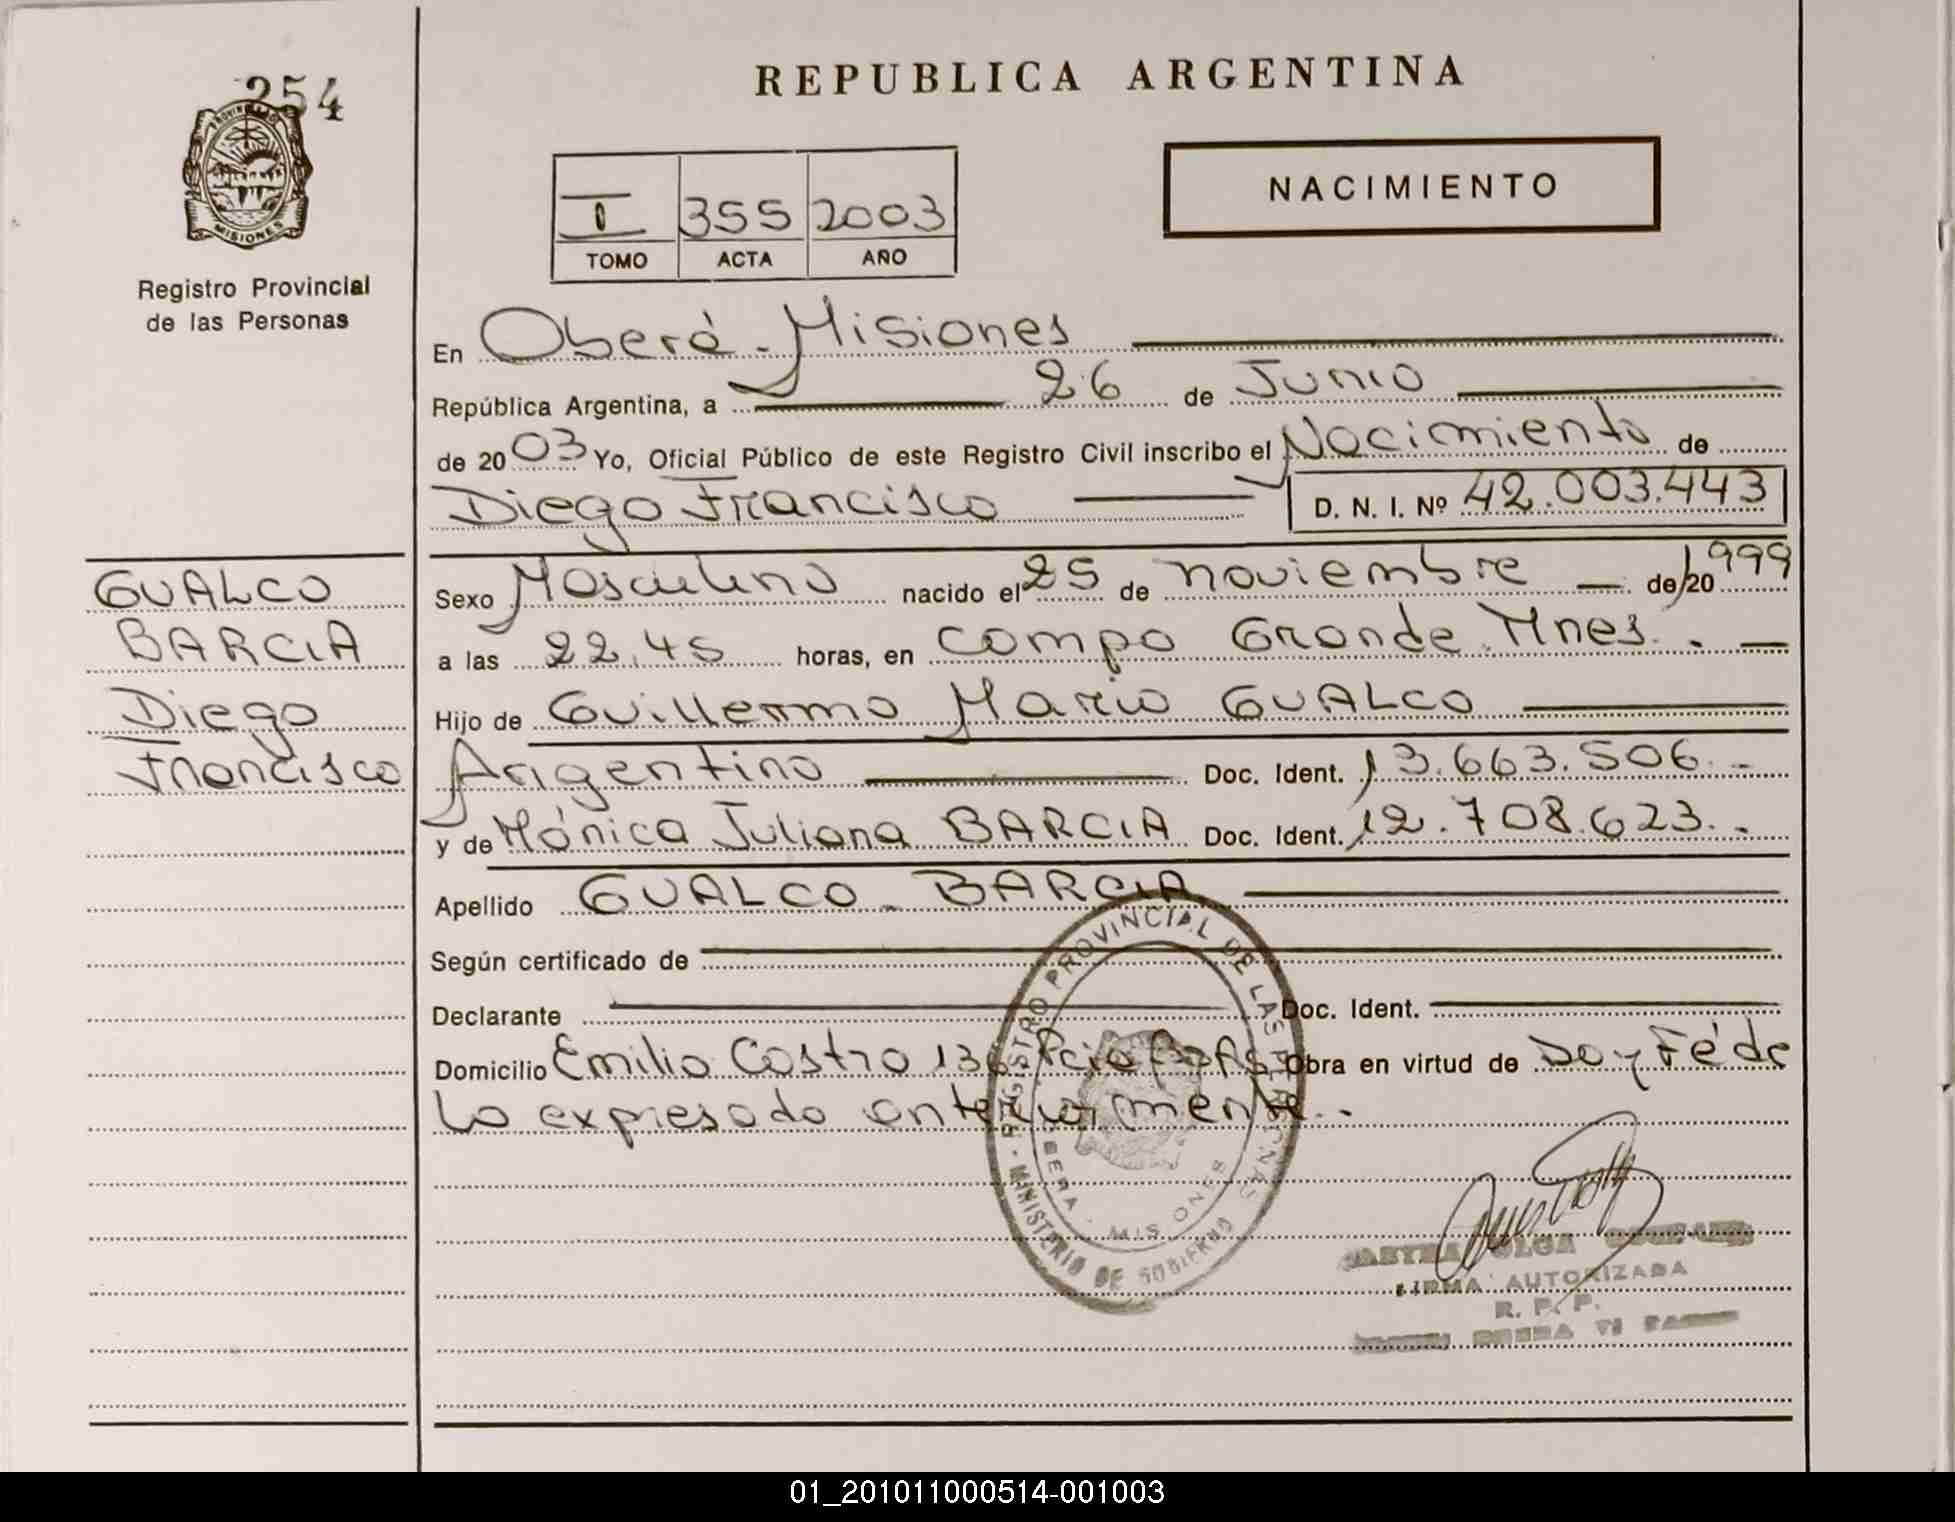 254
PROVINCIA D
MISIONES
Registro Provincial
de las Personas
REPUBLICA ARGENTINA
NACIMIENTO
I 355 2003
TOMO ACTA AÑO
En Oberá - Misiones
República Argentina, a 26 de Junio
de 2003 Yo, Oficial Público de este Registro Civil inscribo el Nacimiento de
Diego Francisco D. N. I. Nº 42.003.443
GUALCO
BARCIA
Diego
Francisco
Sexo Masculino nacido el 25 de noviembre de/20 1999
a las 22.45 horas, en Campo Grande. Mnes. . —
Hijo de Guillermo Mario GUALCO
Argentino Doc. Ident. 13.663.506. -
y de Mónica Juliana BARCIA Doc. Ident. 12.708.623. .
Apellido GUALCO - BARCIA
Según certificado de
Declarante Doc. Ident.
Domicilio Emilio Castro 136 Pcia Obra en virtud de Doy Fé de
Lo expresado anteriormente. .
REGISTRO PROVINCIAL DE LAS PERSONAS
MINISTERIO DE GOBIERNO
BERA - MISIONES
OLGA
FIRMA AUTORIZADA
R. P. P.
01_201011000514-001003